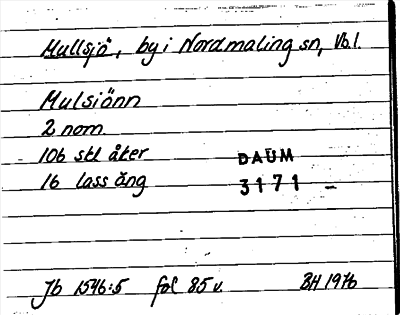 Mullsjö, by i Nordmaling sn, Vb.l.
Mulsiönn
2 nom.
106 stl åker
DAUM
16 lass äng
3171 –
Jb 1546:5 fol 85 v.
BH 1976